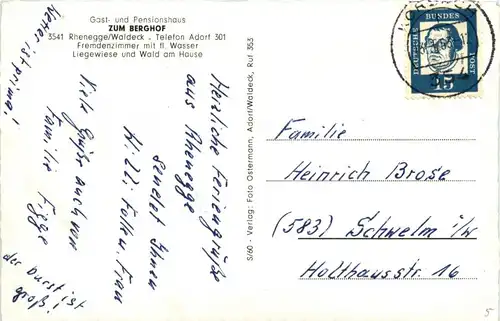 Gast- und Pensionshaus
ZUM BERGHOF
3541 Rhenegge/Waldeck . Telefon Adorf 301
Fremdenzimmer mit fl. Wasser
Liegewiese und Wald am Hause
Wetter ist prima!
Herzliche Feriengrüße
aus Rhenegge
sendet Ihnen
u. Frau
Viele Grüße auch von
Familie Figge
der durst ist
groß!
S/60 - Verlag: Foto Ostermann, Adorf/Waldeck, Ruf 353
DEUTSCHE
BUNDES
POST
15
Familie
Heinrich Brose
(583) Schwelm i/W
Holthausstr. 16
5